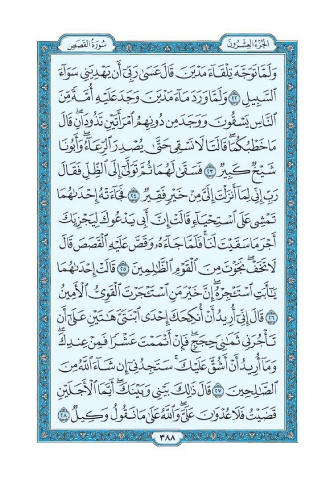 الجزء العشرون
سورة القصص
ولما توجه تلقاء مدين قال عسى ربي أن يهديني سواء
السبيل ٢٢ ولما ورد ماء مدين وجد عليه أمة من
الناس يسقون ووجد من دونهم امرأتين تذودان قال
ما خطبكما قالتا لا نسقي حتى يصدر الرعاء وأبونا
شيخ كبير ٢٣ فسقى لهما ثم تولى إلى الظل فقال
رب إني لما أنزلت إلي من خير فقير ٢٤ فجاءته إحداهما
تمشي على استحياء قالت إن أبي يدعوك ليجزيك
أجر ما سقيت لنا فلما جاءه وقص عليه القصص قال
لا تخف نجوت من القوم الظالمين ٢٥ قالت إحداهما
يا أبت استأجره إن خير من استأجرت القوي الأمين
٢٦ قال إني أريد أن أنكحك إحدى ابنتي هاتين على أن
تأجرني ثماني حجج فإن أتممت عشرا فمن عندك
وما أريد أن أشق عليك ستجدني إن شاء الله من
الصالحين ٢٧ قال ذلك بيني وبينك أيما الأجلين
قضيت فلا عدوان علي والله على ما نقول وكيل ٢٨
٣٨٨